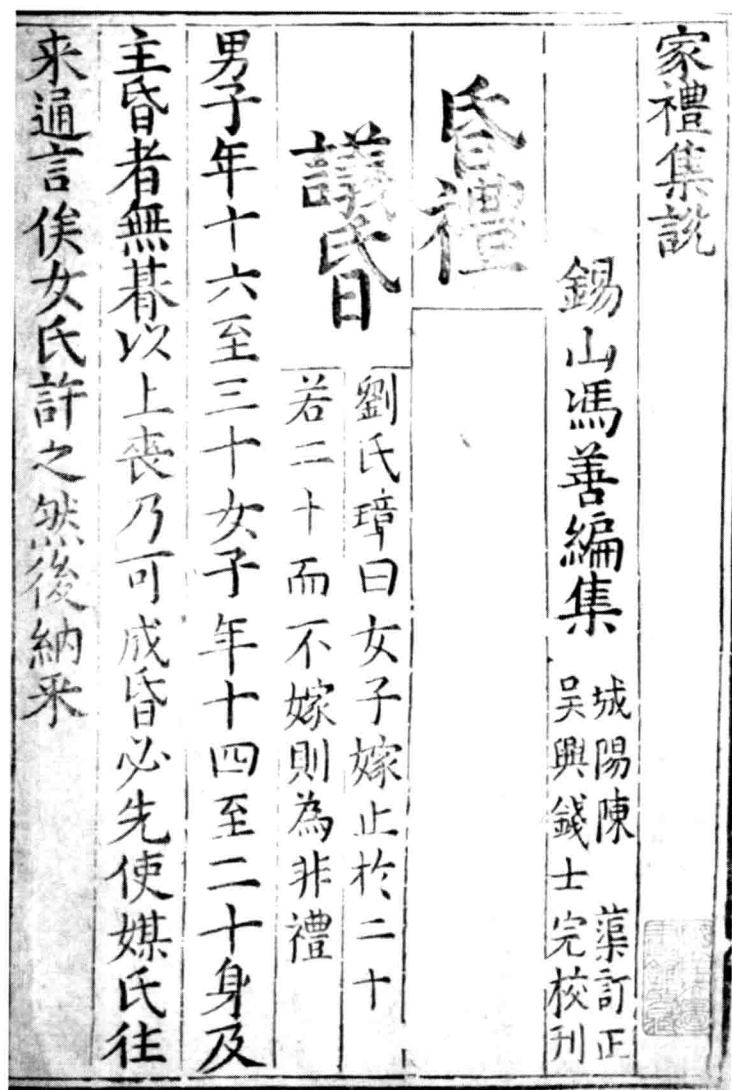 家禮集說
錫山馮善編集
城陽陳　蕖訂正
吳興錢士完校刊
昏禮
議昏
劉氏璋曰女子嫁止於二十
若二十而不嫁則為非禮
男子年十六至三十女子年十四至二十身及
主昏者無朞以上丧乃可成昏必先使媒氏往
来通言俟女氏許之然後納采